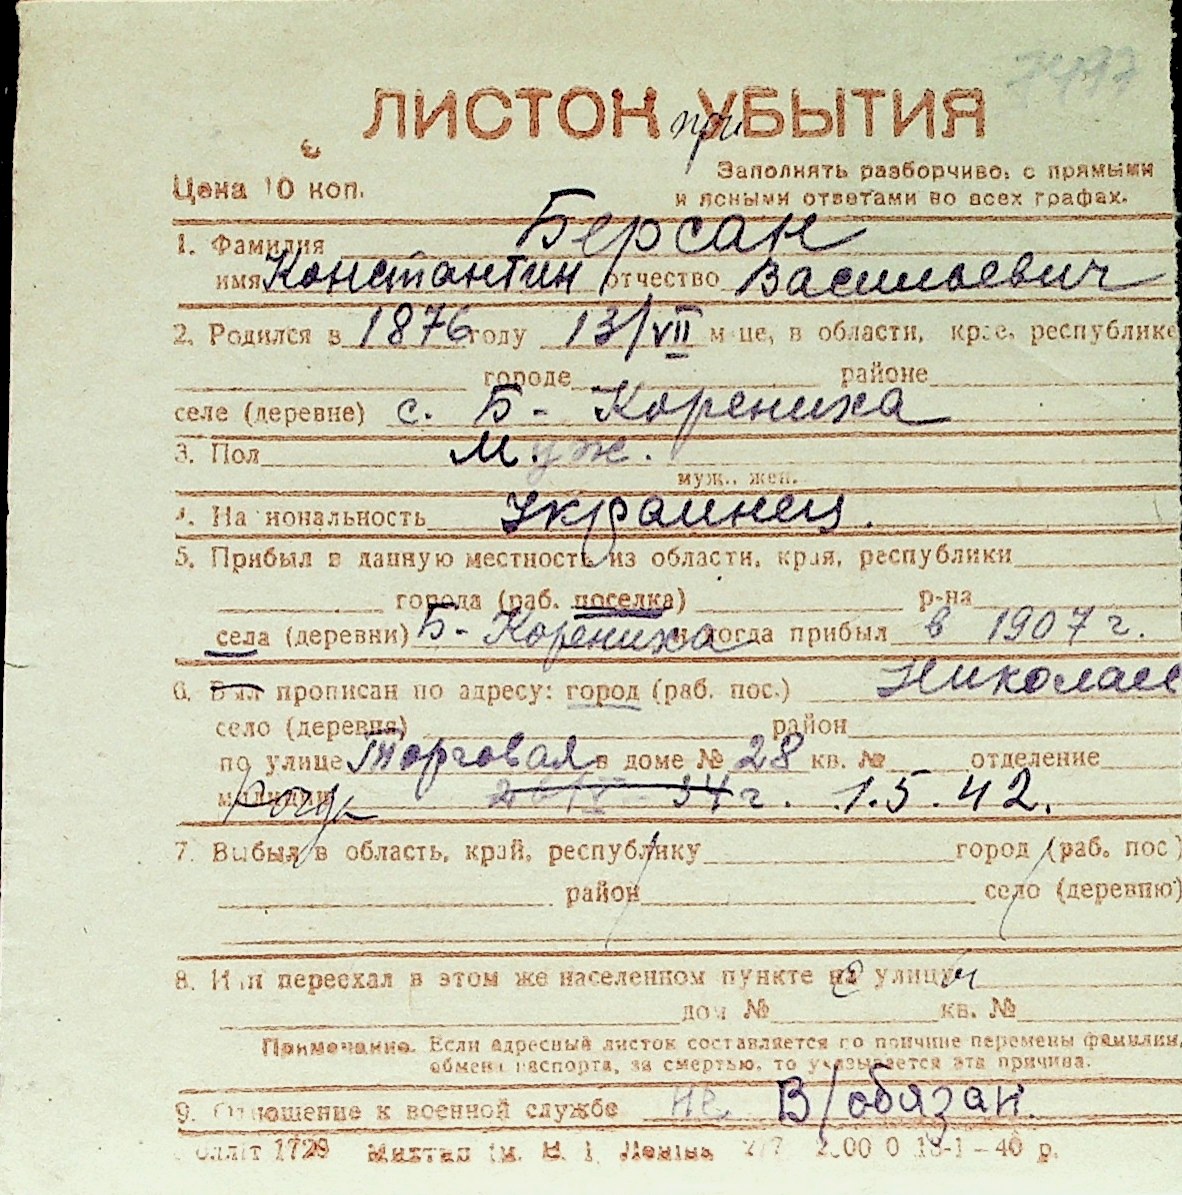 7497
ЛИСТОК при УБЫТИЯ
Цена 10 коп.
Заполнять разборчиво, с прямыми
и ясными ответами во всех графах.
1. Фамилия Берсан
имя Константин отчество Васильевич
2. Родился в 1876 году 13/VII м-це, в области, крае, республике
городе районе
селе (деревне) с. Б-Корениха
3. Пол Муж.
муж., жен.
4. Национальность Украинец.
5. Прибыл в данную местность из области, края, республики
города (раб. поселка) р-на
села (деревни) Б-Корениха и когда прибыл в 1907 г.
6. Был прописан по адресу: город (раб. пос.) Николаев
село (деревня) район
по улице Торговая в доме № 28 кв. № отделение
милиции 34 г. 1.5.42.
7. Выбыл в область, край, республику город (раб. пос)
район село (деревню)
8. Или переехал в этом же населенном пункте на улицу
дом № кв. №
Примечание. Если адресный листок составляется по причине перемены фамилии,
обмена паспорта, за смертью, то указывается эта причина.
9. Отношение к военной службе не В/обязан.
1729 ім. В. І. Леніна 18-1-40 р.